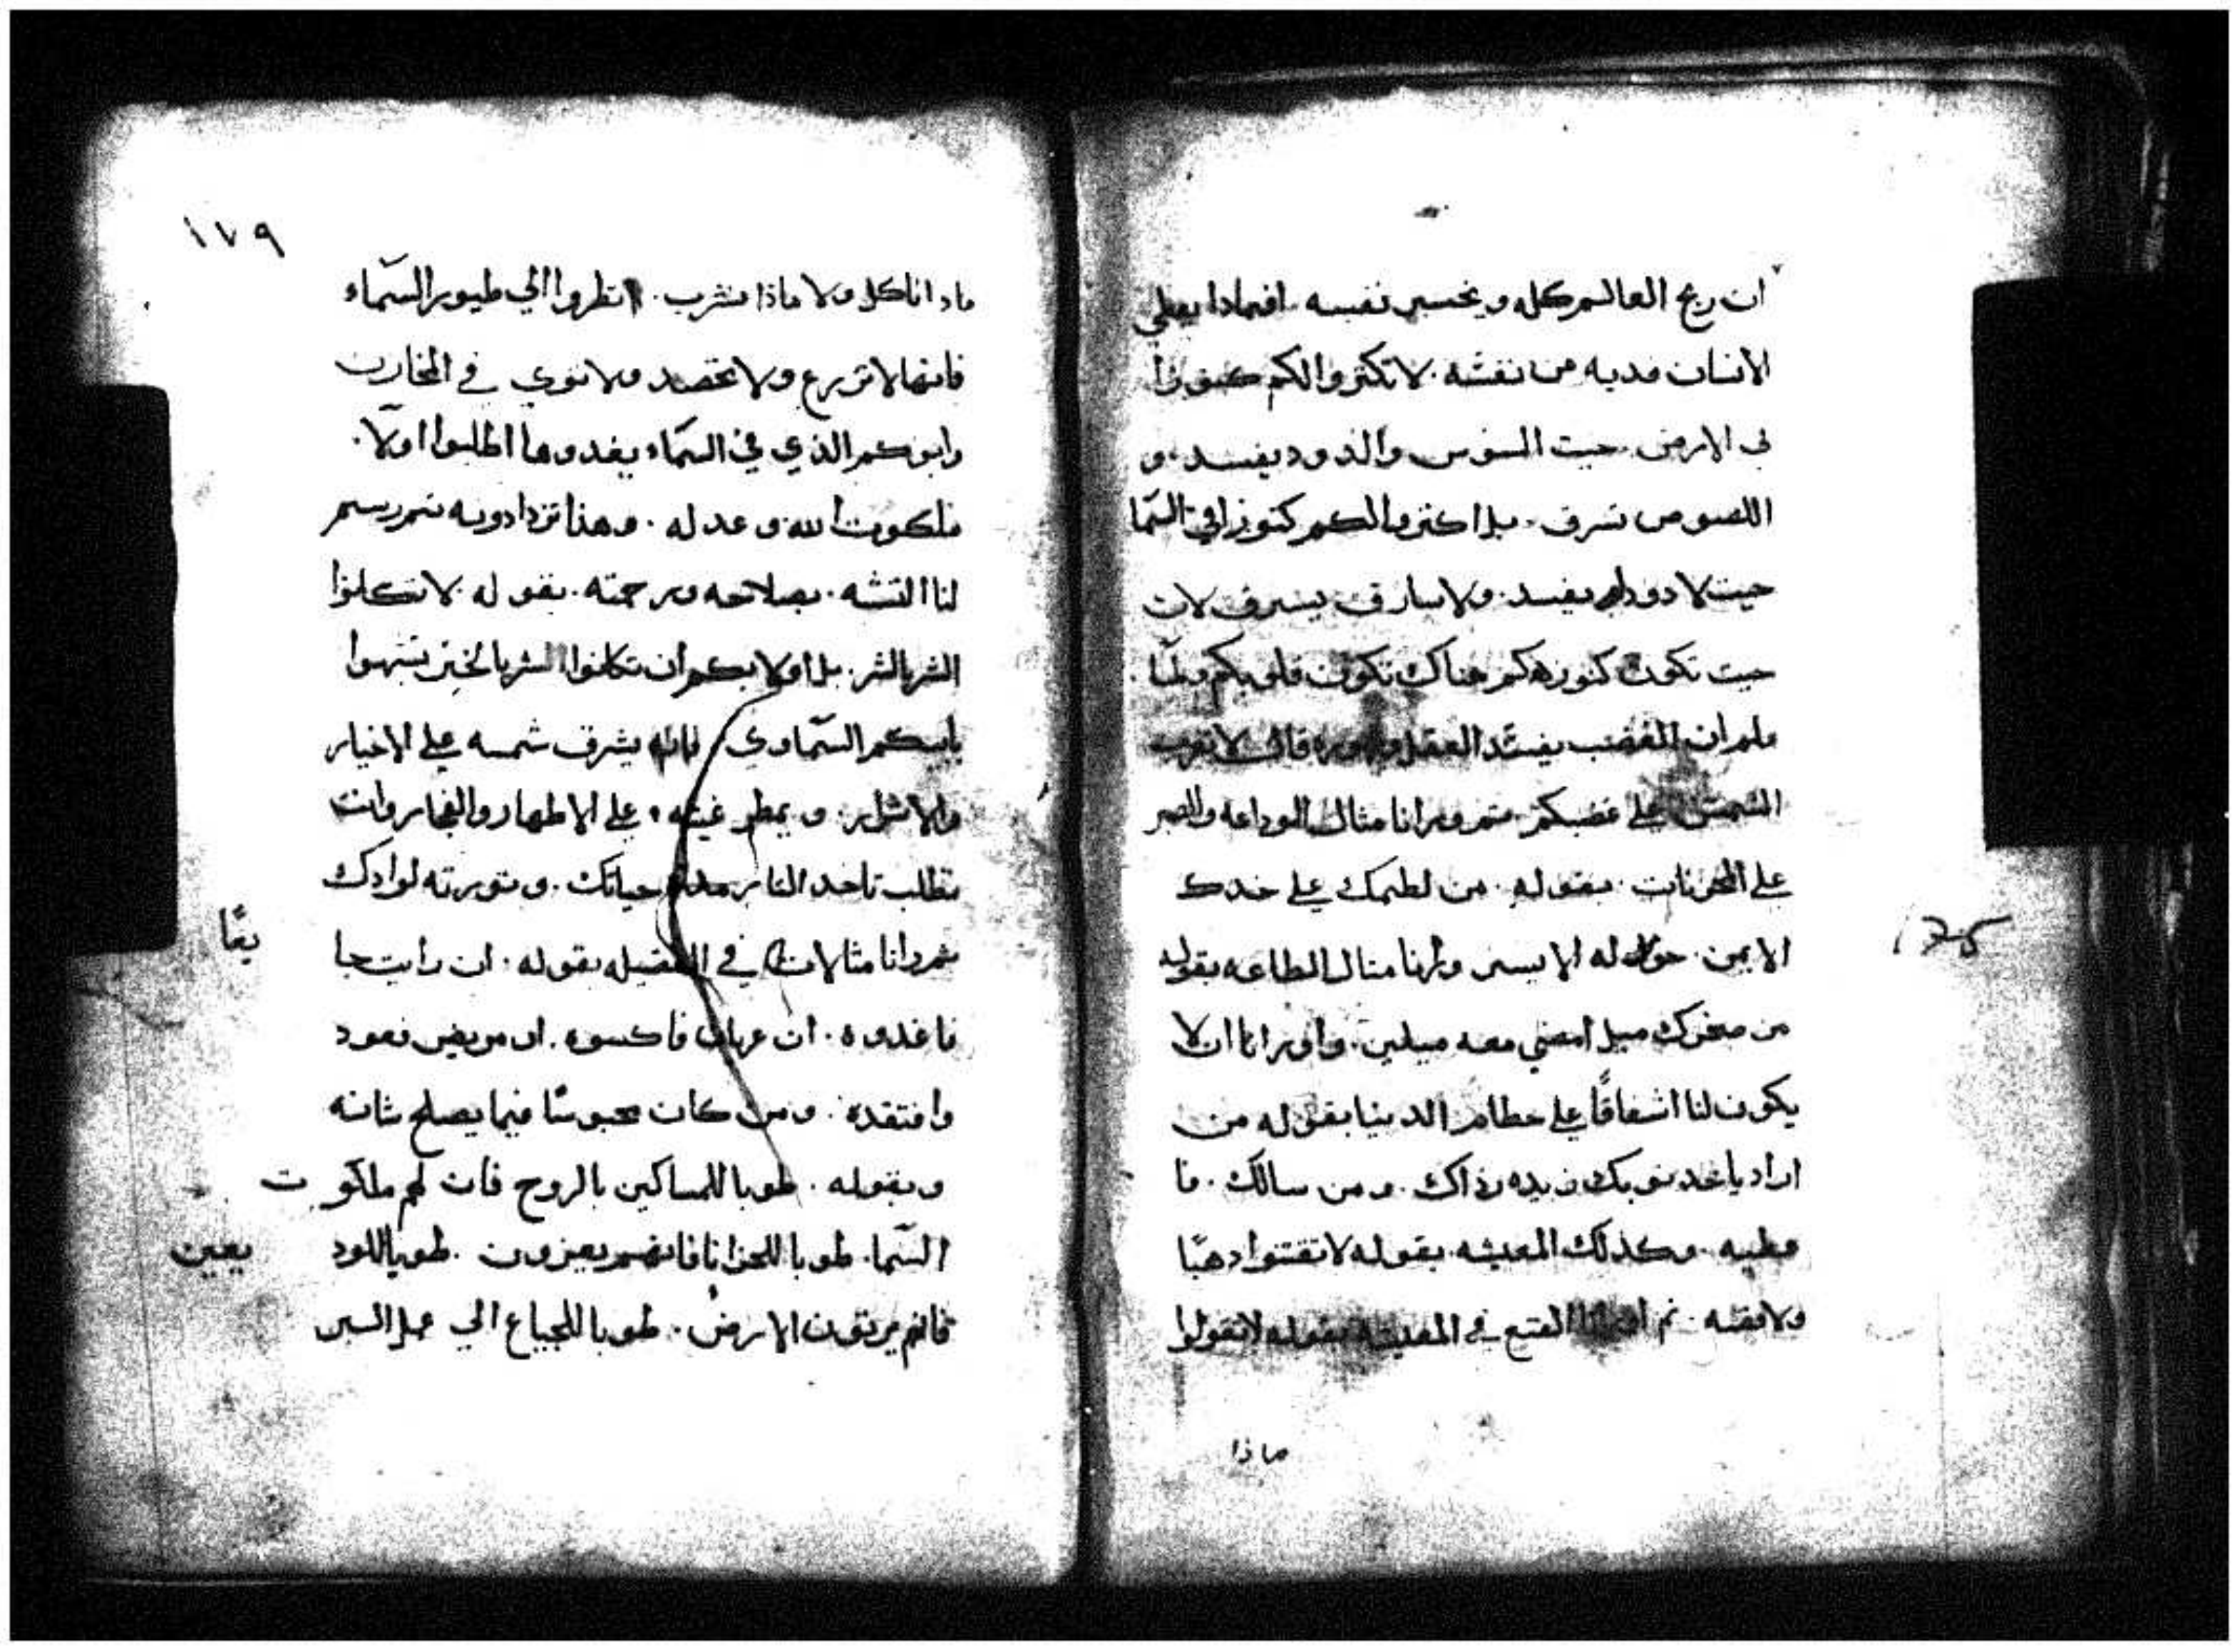 ان ربح العالم كله ويخسر نفسه افمادا يعطي
الانسان فديه من نفسه لا تكتروا لكم كنوزا
في الارض حيت السوس والدود يفسد و
اللصوص تسرق بل اكنزوا لكم كنوزا في السما
حيت لا دود يفسد ولا سارق يسرق لان
حيت تكون كنوزكم هناك تكون قلوبكم ولما
علم ان الغضب يفسد العقل قال لا تغرب
الشمس على غضبكم تم ورانا متال الوداعه والصبر
على المحزنات بقوله من لطمك على خدك
الايمن حول له الايسر ورانا متال الطاعه بقوله
من سخرك ميل امضي معه ميلين واورانا ان لا
يكون لنا اشفاقا على حطام الدنيا بقوله من
اراد ياخد توبك زيده رداك ومن سالك فا
عطيه وكدلك المعيشه بقوله لا تقتنوا دهبا
ولا فضه تم القنع في المعيشه بقوله لا تقولوا
ماذا
١٧٩
مادا ناكل ولا ماذا نشرب انظروا الي طيور السماء
فانها لا تزرع ولا تحصد ولا توي في المخازن
وابوكم الذي في السماء يغدوها اطلبوا اولا
ملكوت الله وعدله وهذا تزدادونه تم رسم
لنا التشبه بصلاحه ورحمته بقوله لا تكافوا
الشر بالشر بل اولا بكم ان تكافوا الشر بالخير تشبهوا
بابيكم السماوي فانه يشرق شمسه على الاخيار
والاشرار ويمطر غيته على الاطهار والفجار وانت
تطلب تاخد التار مده حياتك وتورته لولادك
تم ورانا متالات في الفضيله بقوله ان رايت جا
يعًا
فاغدوه ان عريان فاكسوه او مريض فعود
وافتقده ومن كان محبوسا فيما يصلح شانه
وبقوله طوبا للمساكين بالروح فان لهم ملكوت
السما طوبا للحزانا فانهم يعزون طوبا للود
يعين
فانهم يرتون الارض طوبا للجياع الي عمل البر